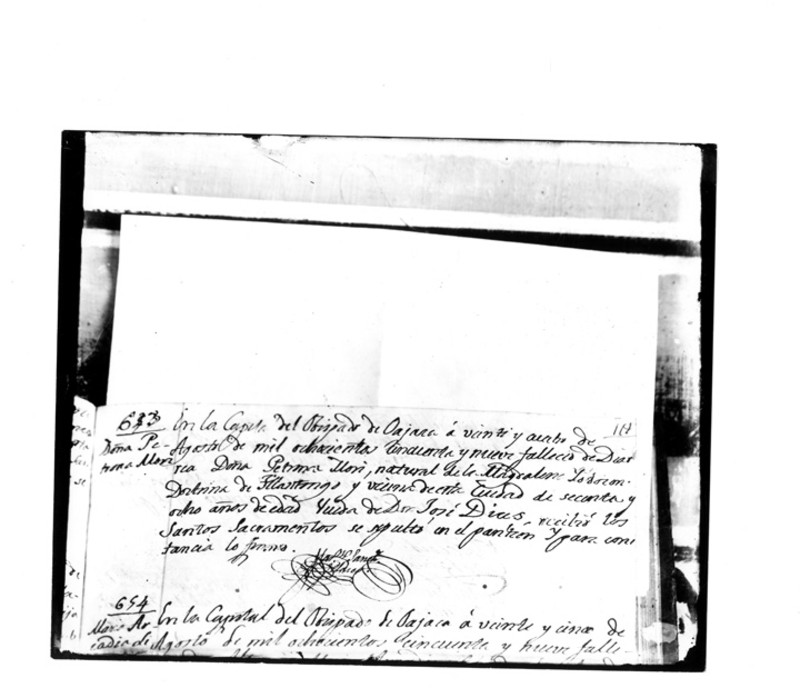 653
Doña Pe-
trona Mori
En la Capital del Obispado de Oajaca á veinte y cuatro de
Agosto de mil ochocientos cincuenta y nueve fallecio de Diar
rea Doña Petrona Mori, natural de la Magdalena
Doctrina de Tilantongo y vicina de esta Ciudad de secenta y
ocho años de edad Viuda de Don José Dias, recibió los
Santos Sacramentos se sepultó en el panteon Y para cons
tancia lo firmo.
654
Maria Ar
cadia
En la Capital del Obispado de Oajaca á veinte y cinco de
Agosto de mil ochocientos cincuenta y nueve falle-